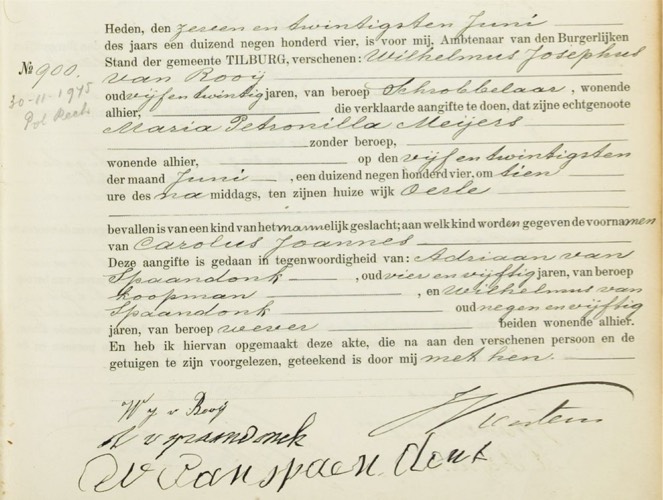 Heden, den zeven en twintigsten Juni
des jaars een duizend negen honderd vier, is voor mij, Ambtenaar van den Burgerlijken
Stand der gemeente TILBURG, verschenen: Wilhelmus Josephus
№ 900.
van Rooij
30-11-1945
oud vijf en twintig jaren, van beroep Schrobbelaar, wonende
alhier, die verklaarde aangifte te doen, dat zijne echtgenoote
Maria Petronilla Meijers
zonder beroep,
wonende alhier, op den vijf en twintigsten
der maand Juni, een duizend negen honderd vier, om tien
ure des na middags, ten zijnen huize wijk Oerle
bevallen is van een kind van het mannelijk geslacht; aan welk kind worden gegeven de voornamen
van Carolus Joannes
Deze aangifte is gedaan in tegenwoordigheid van: Adriaan van
Spaandonk, oud vier en vijftig jaren, van beroep
koopman, en Wilhelmus van
Spaandonk oud negen en vijftig
jaren, van beroep wever beiden wonende alhier.
En heb ik hiervan opgemaakt deze akte, die na aan den verschenen persoon en de
getuigen te zijn voorgelezen, geteekend is door mij met hen.
W J v Rooij